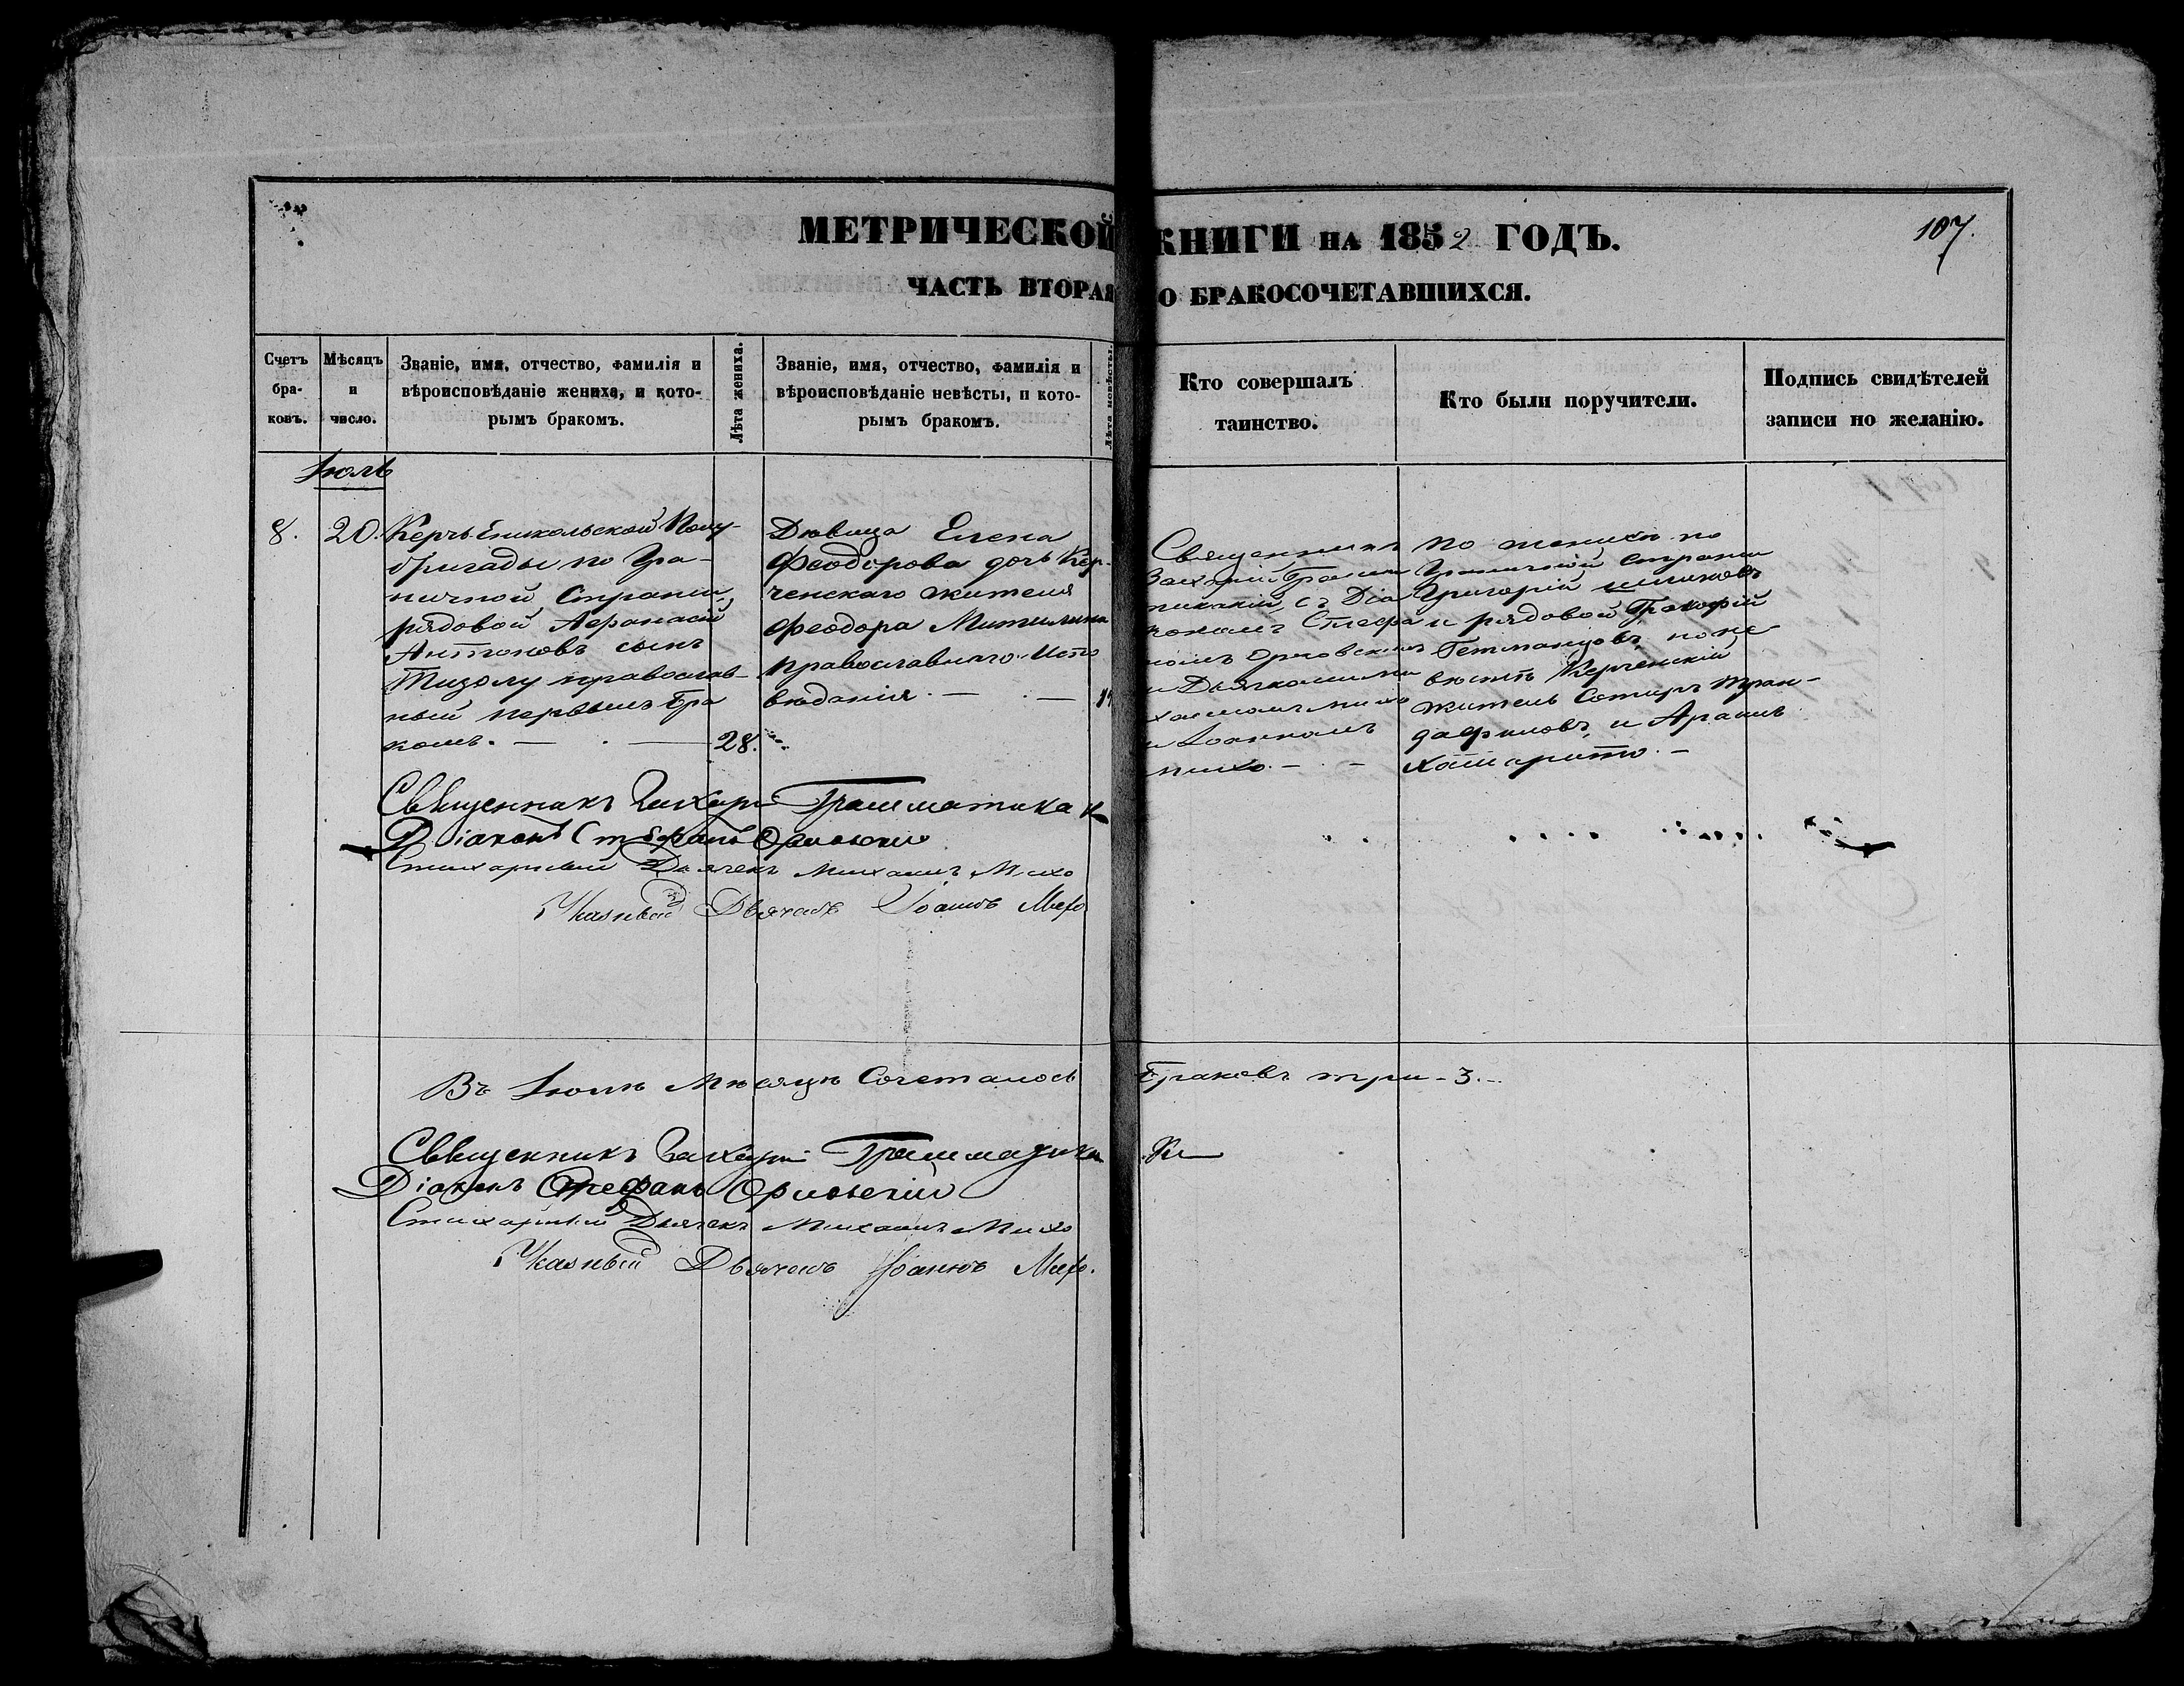 МЕТРИЧЕСКОЙ КНИГИ НА 1852 ГОДЪ.
107.
ЧАСТЬ ВТОРАЯ О БРАКОСОЧЕТАВШИХСЯ.
Счетъ бра-ковъ.
Мѣсяцъ и число.
Званіе, имя, отчество, фамилія и
вѣроисповѣданіе жениха, и кото-
рымъ бракомъ.
Лѣта жениха.
Званіе, имя, отчество, фамилія и
вѣроисповѣданіе невѣсты, и кото-
рымъ бракомъ.
Лѣта невѣсты.
Кто совершалъ
таинство.
Кто были поручители.
Подпись свидѣтелей
записи по желанію.
Іюль
8.
20.
Керчь Еникольской Полу-
бригады по Гра-
ничной Стражи,
рядовой Аѳанасій
Антоновъ сынъ
Тизолу православ-
ный первымъ бра
комъ. — . —
28.
Дѣвица Елена
Феодорова дочь Кер-
ченскаго жителя
Феодора Митилина
православнаго испо
вѣданія. — . —
Священникъ
Захарій Грамма
тикакій, съ Діа
кономъ Стефа
номъ Орловскимъ
и Дьячками Ми
хаиломъ Михо
и Іоанномъ
Михо. — . —
По женихѣ по
Граничной Стражи
Григорій
и рядовой Прокофій
Гетманцовъ, по не
вѣстѣ Керченскій
житель Сотиръ Тран-
дафиловъ, и
. —
Священникъ Захарій Грамматика К
Діаконъ Стефанъ Орловскій
Стихарный Дьячекъ Михаилъ Михо
Указный Дьячекъ Іоаннъ Михо
Въ Іюлѣ Мѣсяцѣ Сочеталось Браковъ три - 3. —
Священникъ Захарій Грамматика Ки
Діаконъ Стефанъ Орловскій
Стихарный Дьячекъ Михаилъ Михо
Указный Дьячекъ Іоаннъ Михо.